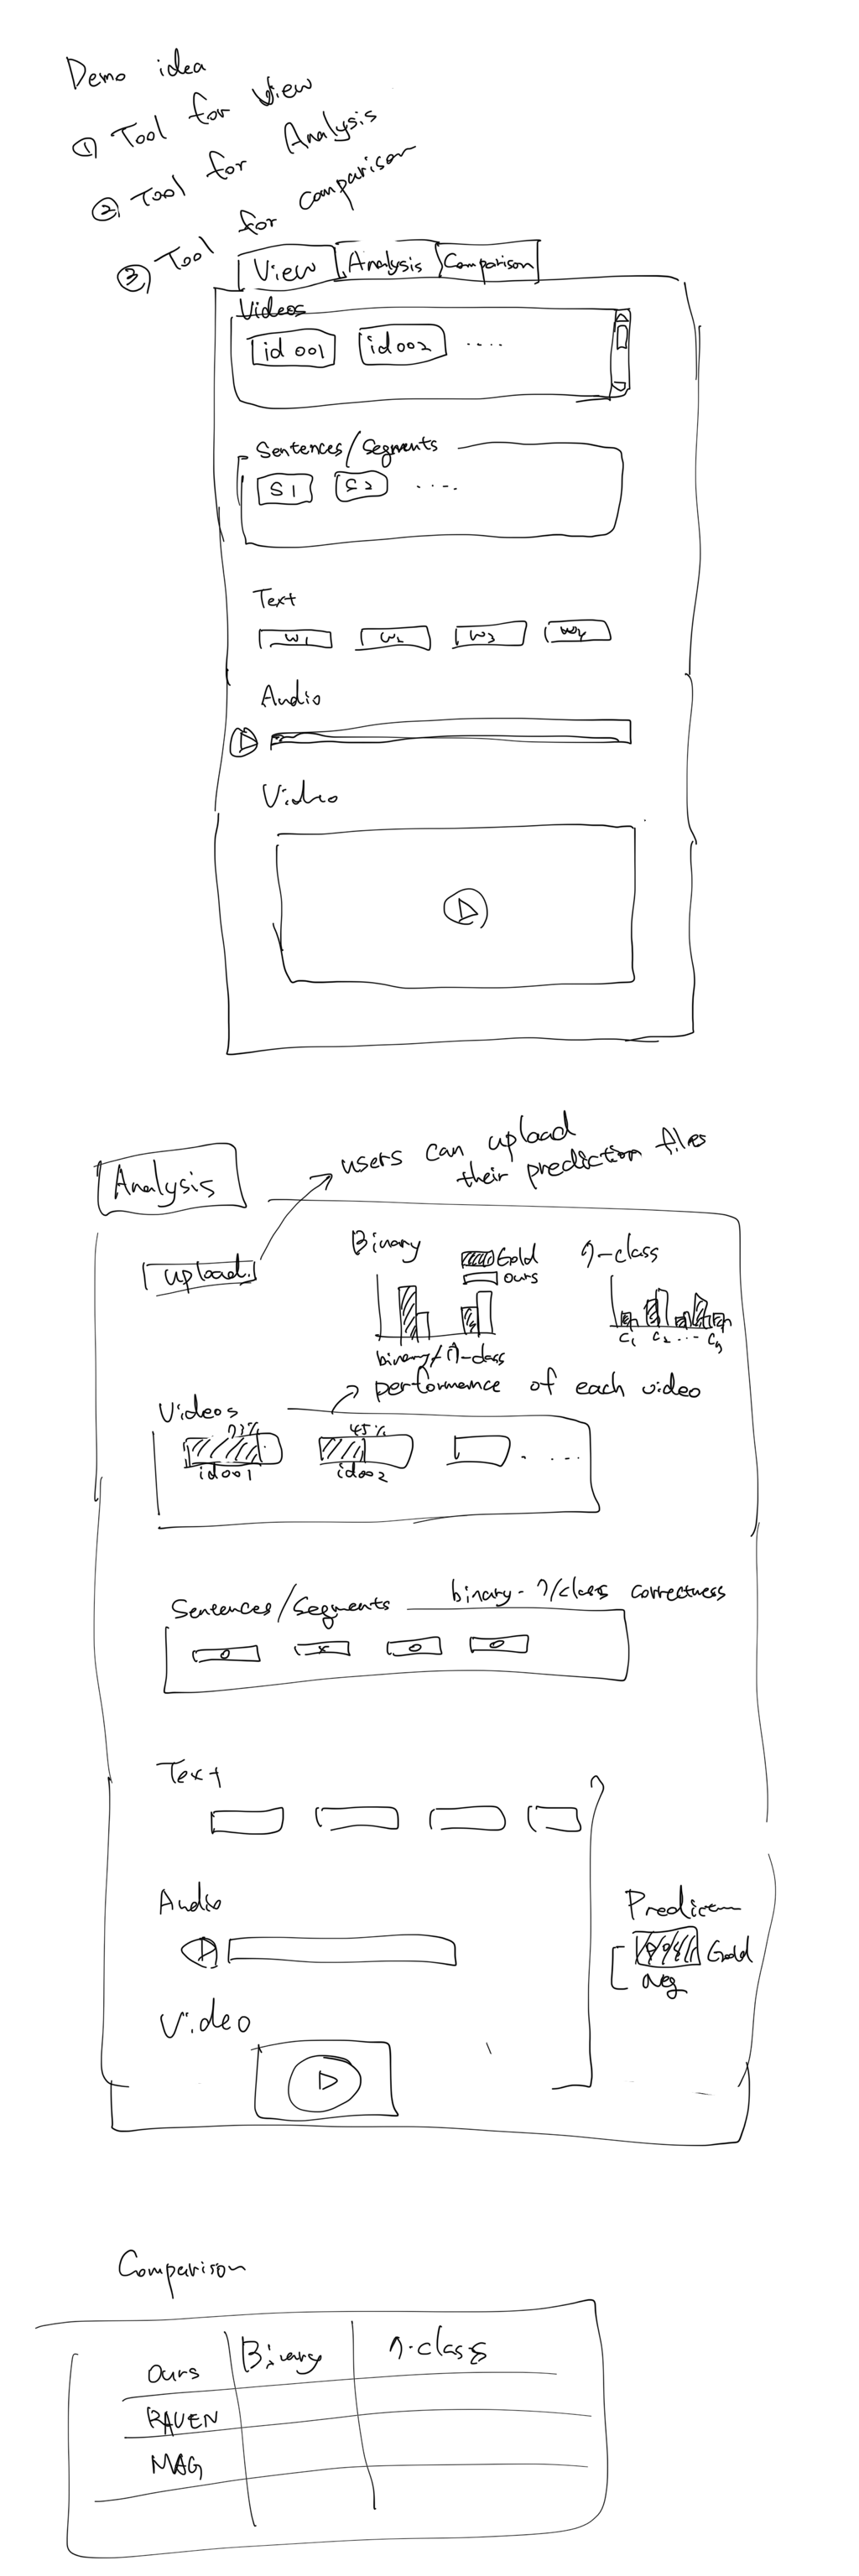 Demo idea
① Tool for View
② Tool for Analysis
③ Tool for Comparison
View Analysis Comparison
Videos
id 001 id 002 ....
Sentences/Segments
S1 S2 ....
Text
w1 w2 w3 w4
Audio
Video
Analysis
users can upload
their prediction files
upload
Binary
Gold
ours
7-class
C1 C2 ...
binary/7-class
performance of each video
Videos
45%
id001 id002 ....
Sentences/Segments
binary-7/class correctness
o x o o
Text
Audio
Video
Gold
neg
Comparison
ours Binary 7-class
RAVEN
MAG